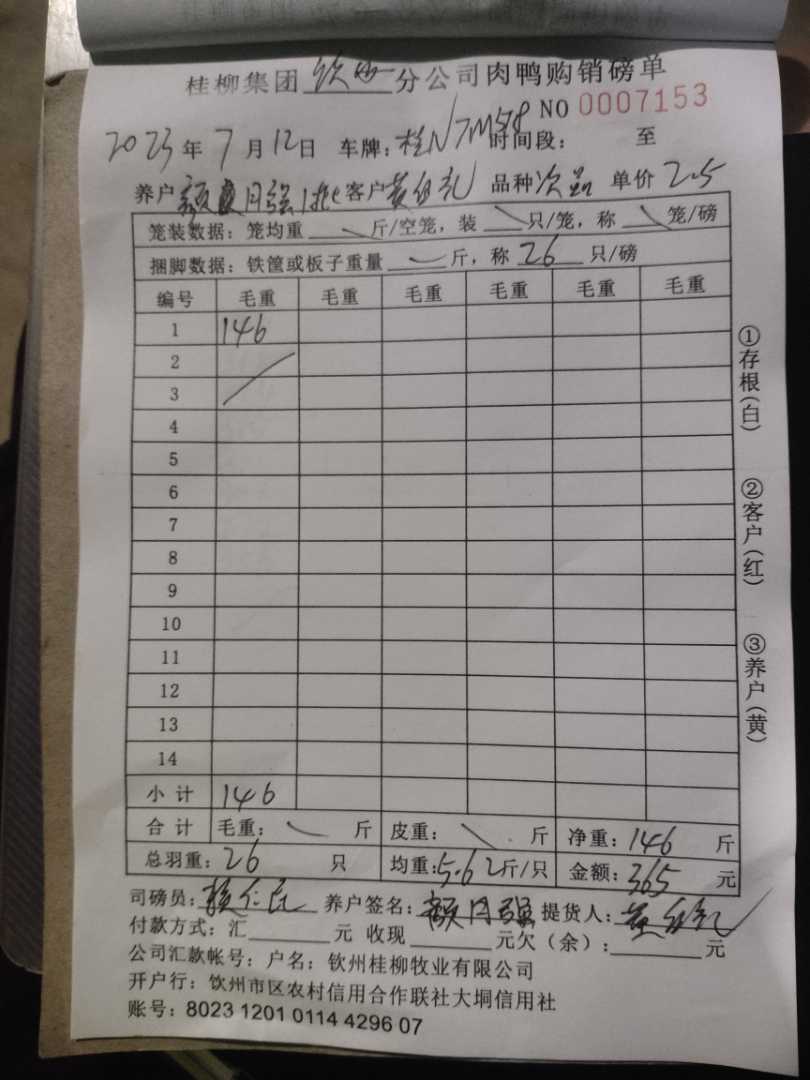 桂柳集团 钦州 分公司肉鸭购销磅单
NO 0007153
2023 年 7 月 12 日 车牌: 桂N7M578 时间段: 至
养户 月强 客户 黄 品种 次品 单价 2.5
笼装数据: 笼均重 斤/空笼, 装 只/笼, 称 笼/磅
捆脚数据: 铁筐或板子重量 斤, 称 26 只/磅
编号 毛重 毛重 毛重 毛重 毛重 毛重
1 146
2
3
4
5
6
7
8
9
10
11
12
13
14
小计 146
合计 毛重: 斤 皮重: 斤 净重: 146 斤
总羽重: 26 只 均重: 5.62 斤/只 金额: 365 元
司磅员: 养户签名: 月强 提货人: 黄
付款方式: 汇 元 收现 元欠(余): 元
公司汇款帐号: 户名: 钦州桂柳牧业有限公司
开户行: 钦州市区农村信用合作联社大垌信用社
账号: 8023 1201 0114 4296 07
①存根(白)
②客户(红)
③养户(黄)